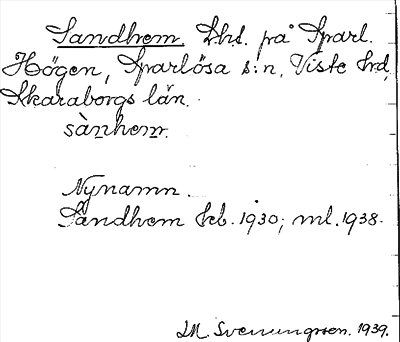 Sandhem. Lhs. på Sparl.
Högen, Sparlösa s:n, Viste hrd,
Skaraborgs län.
sànhem.
Nynamn.
Sandhem Kb. 1930; ml. 1938.
M. Svenungsson. 1939.